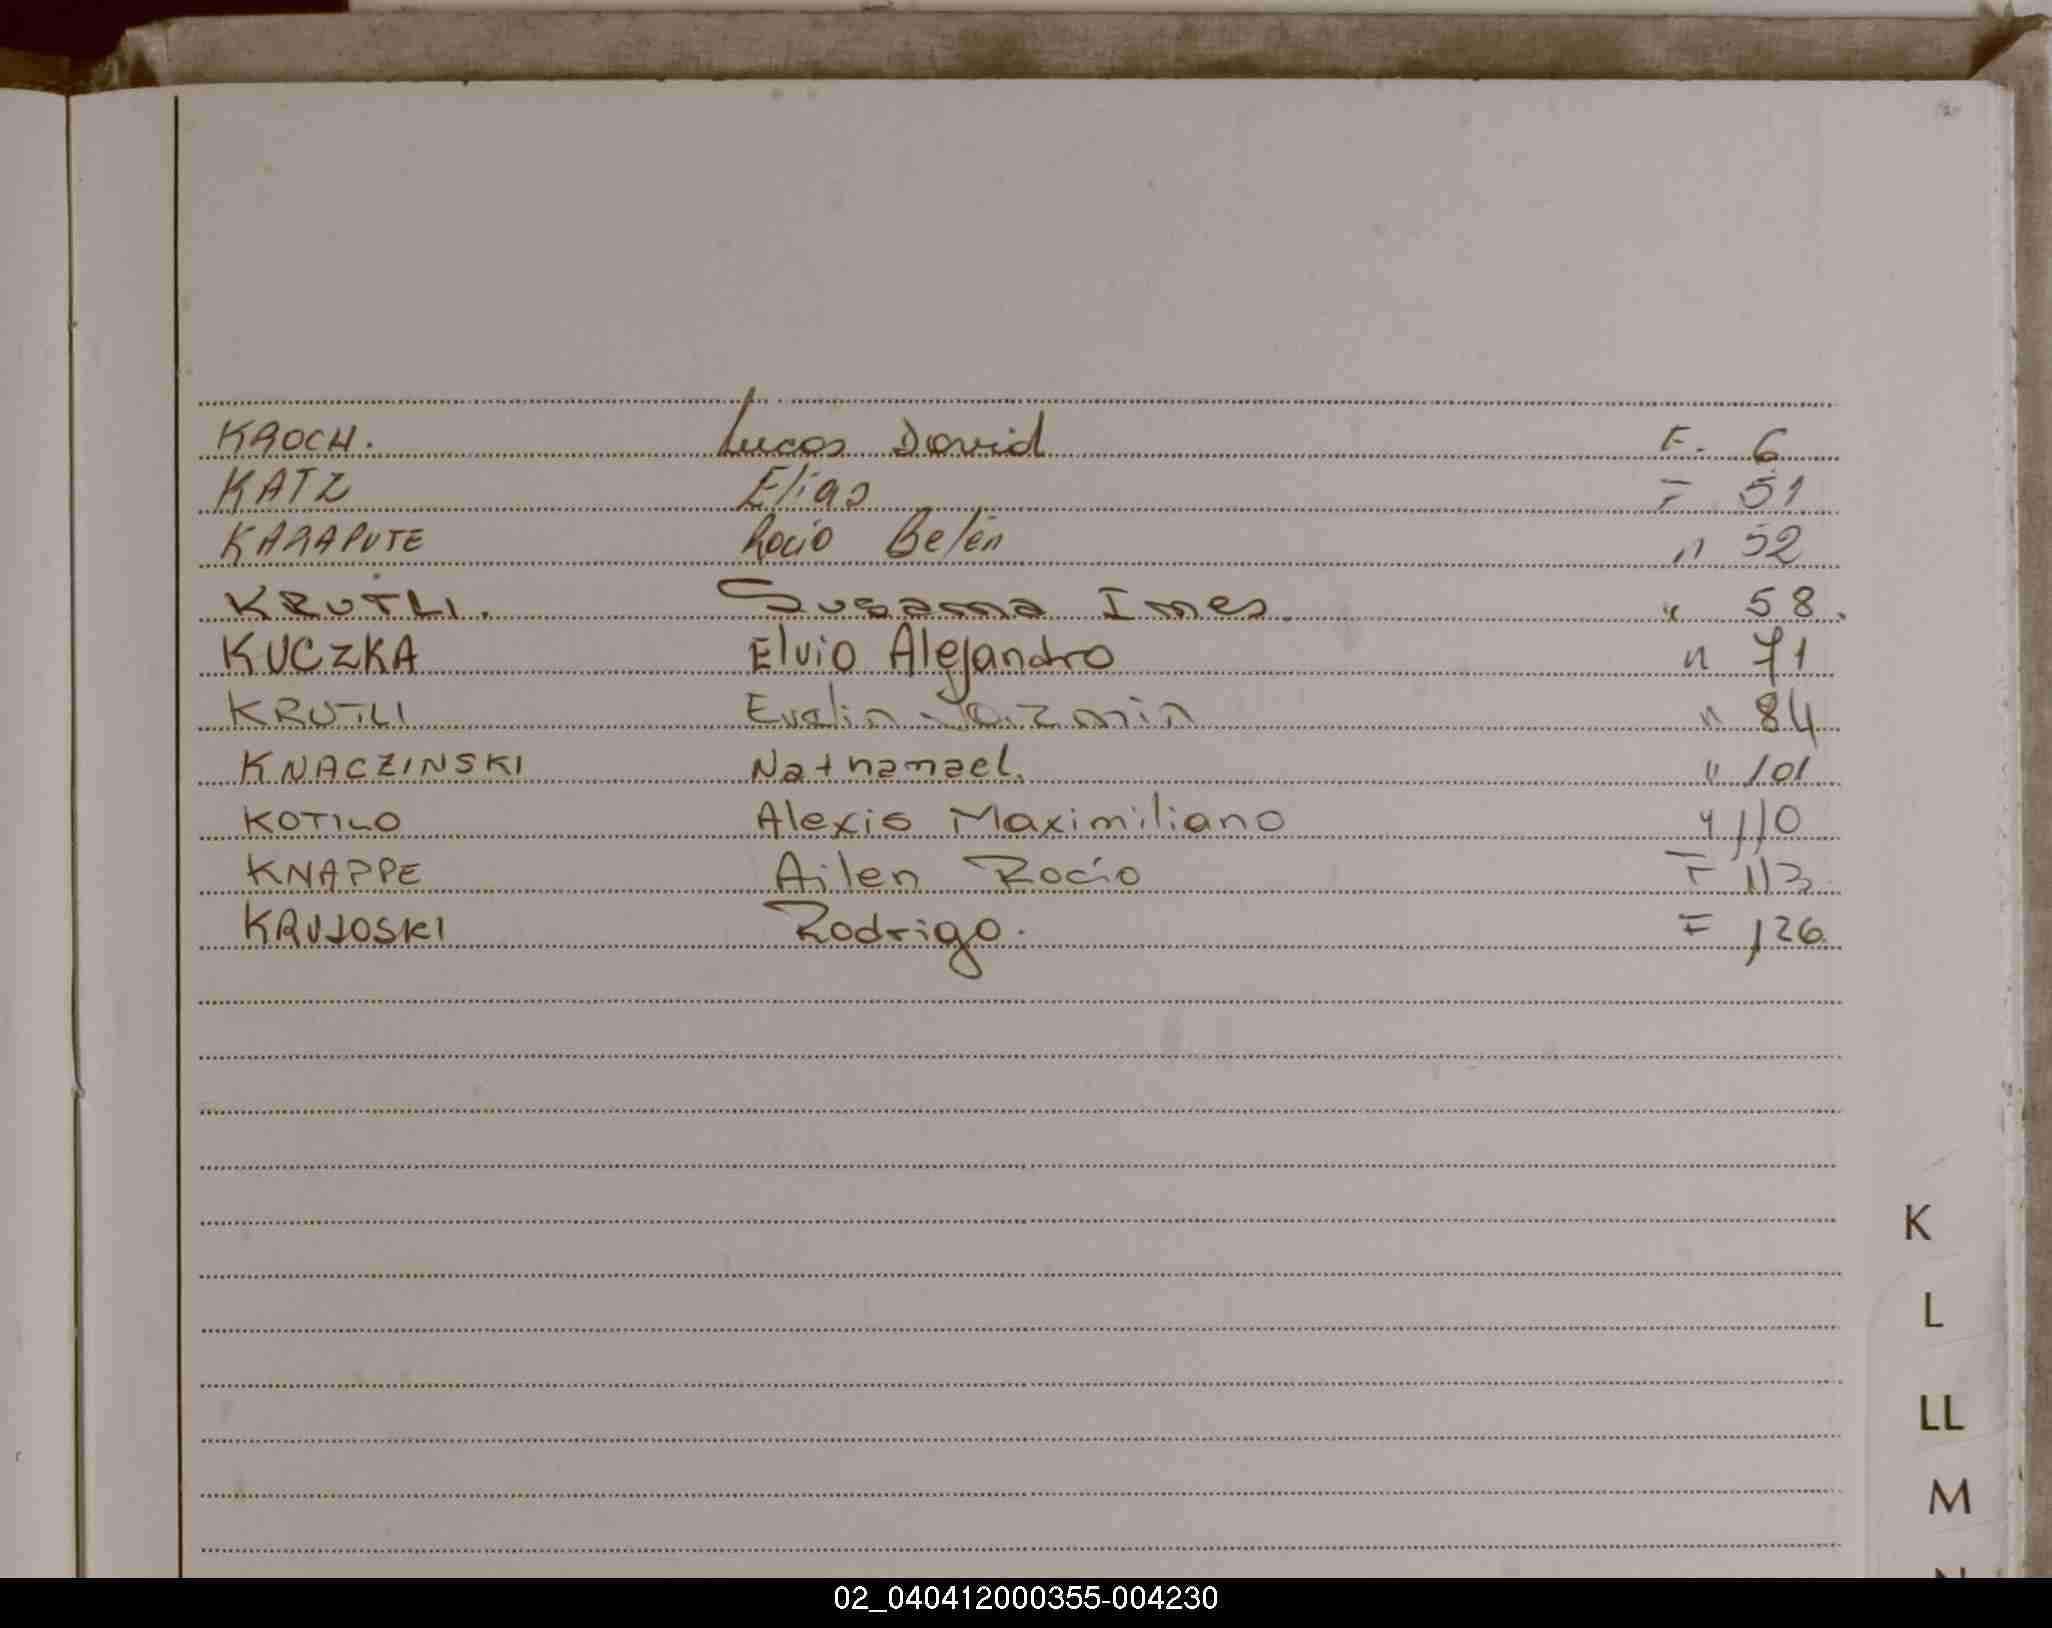 KROCH. Lucas David F. 6
KATZ Elias F 51
KARAPUTE Rocio Belén " 52
KRUTLI. Susana Ines. " 58.
KUCZKA Elvio Alejandro " 71
KRUTLI Evelin Jazmin " 84
KNACZINSKI Nathanael. " 101
KOTILO Alexis Maximiliano " 110
KNAPPE Ailen Rocío F 113
Rodrigo. F 126.
K
L
LL
M
02_040412000355-004230